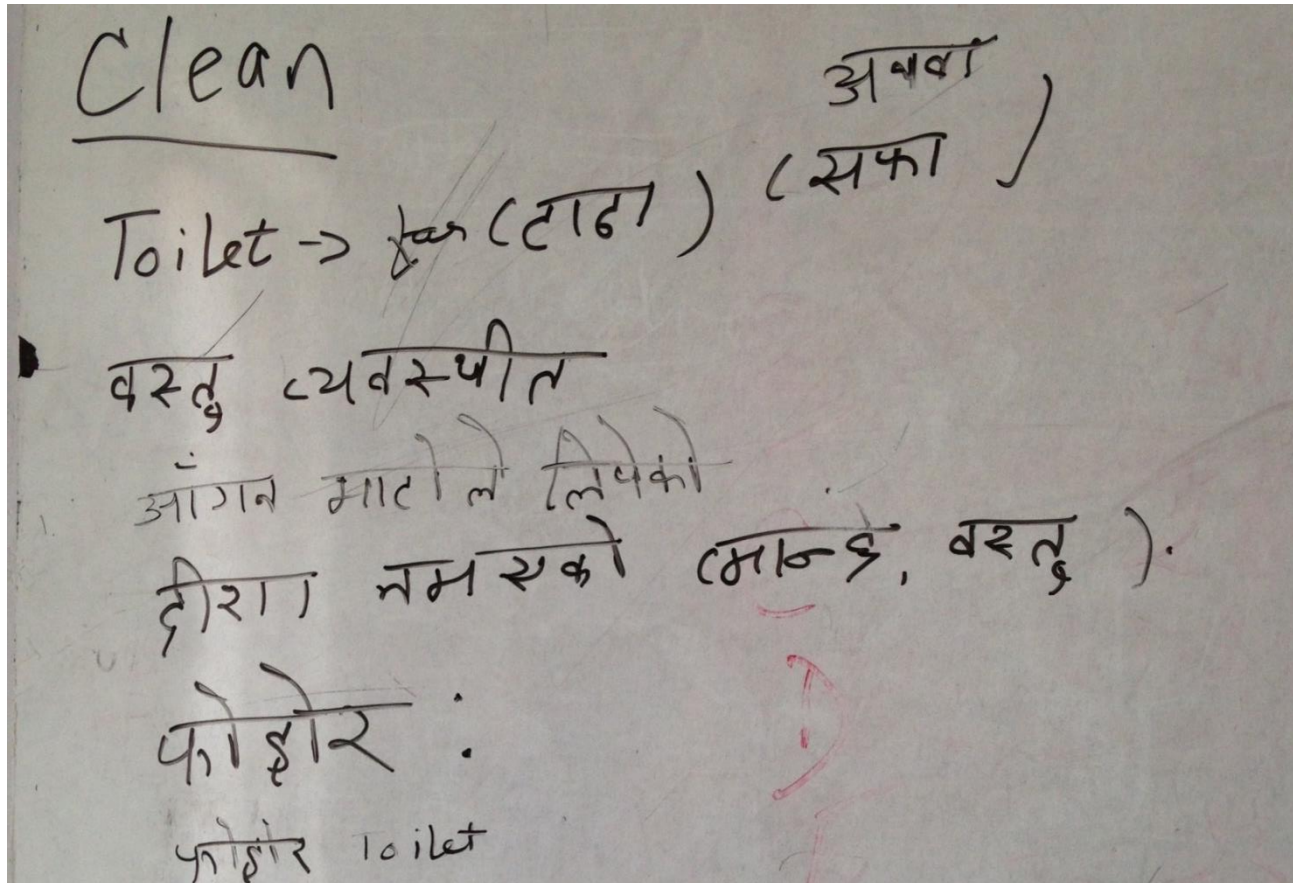 Clean
Toilet → far (टाढा) (सफा अथवा)
वस्तु व्यवस्थीत
आंगन माटो ले लिपेको
दीशा नमस्को (मान्छे, वस्तु).
फोहोर :
फोहोर Toilet